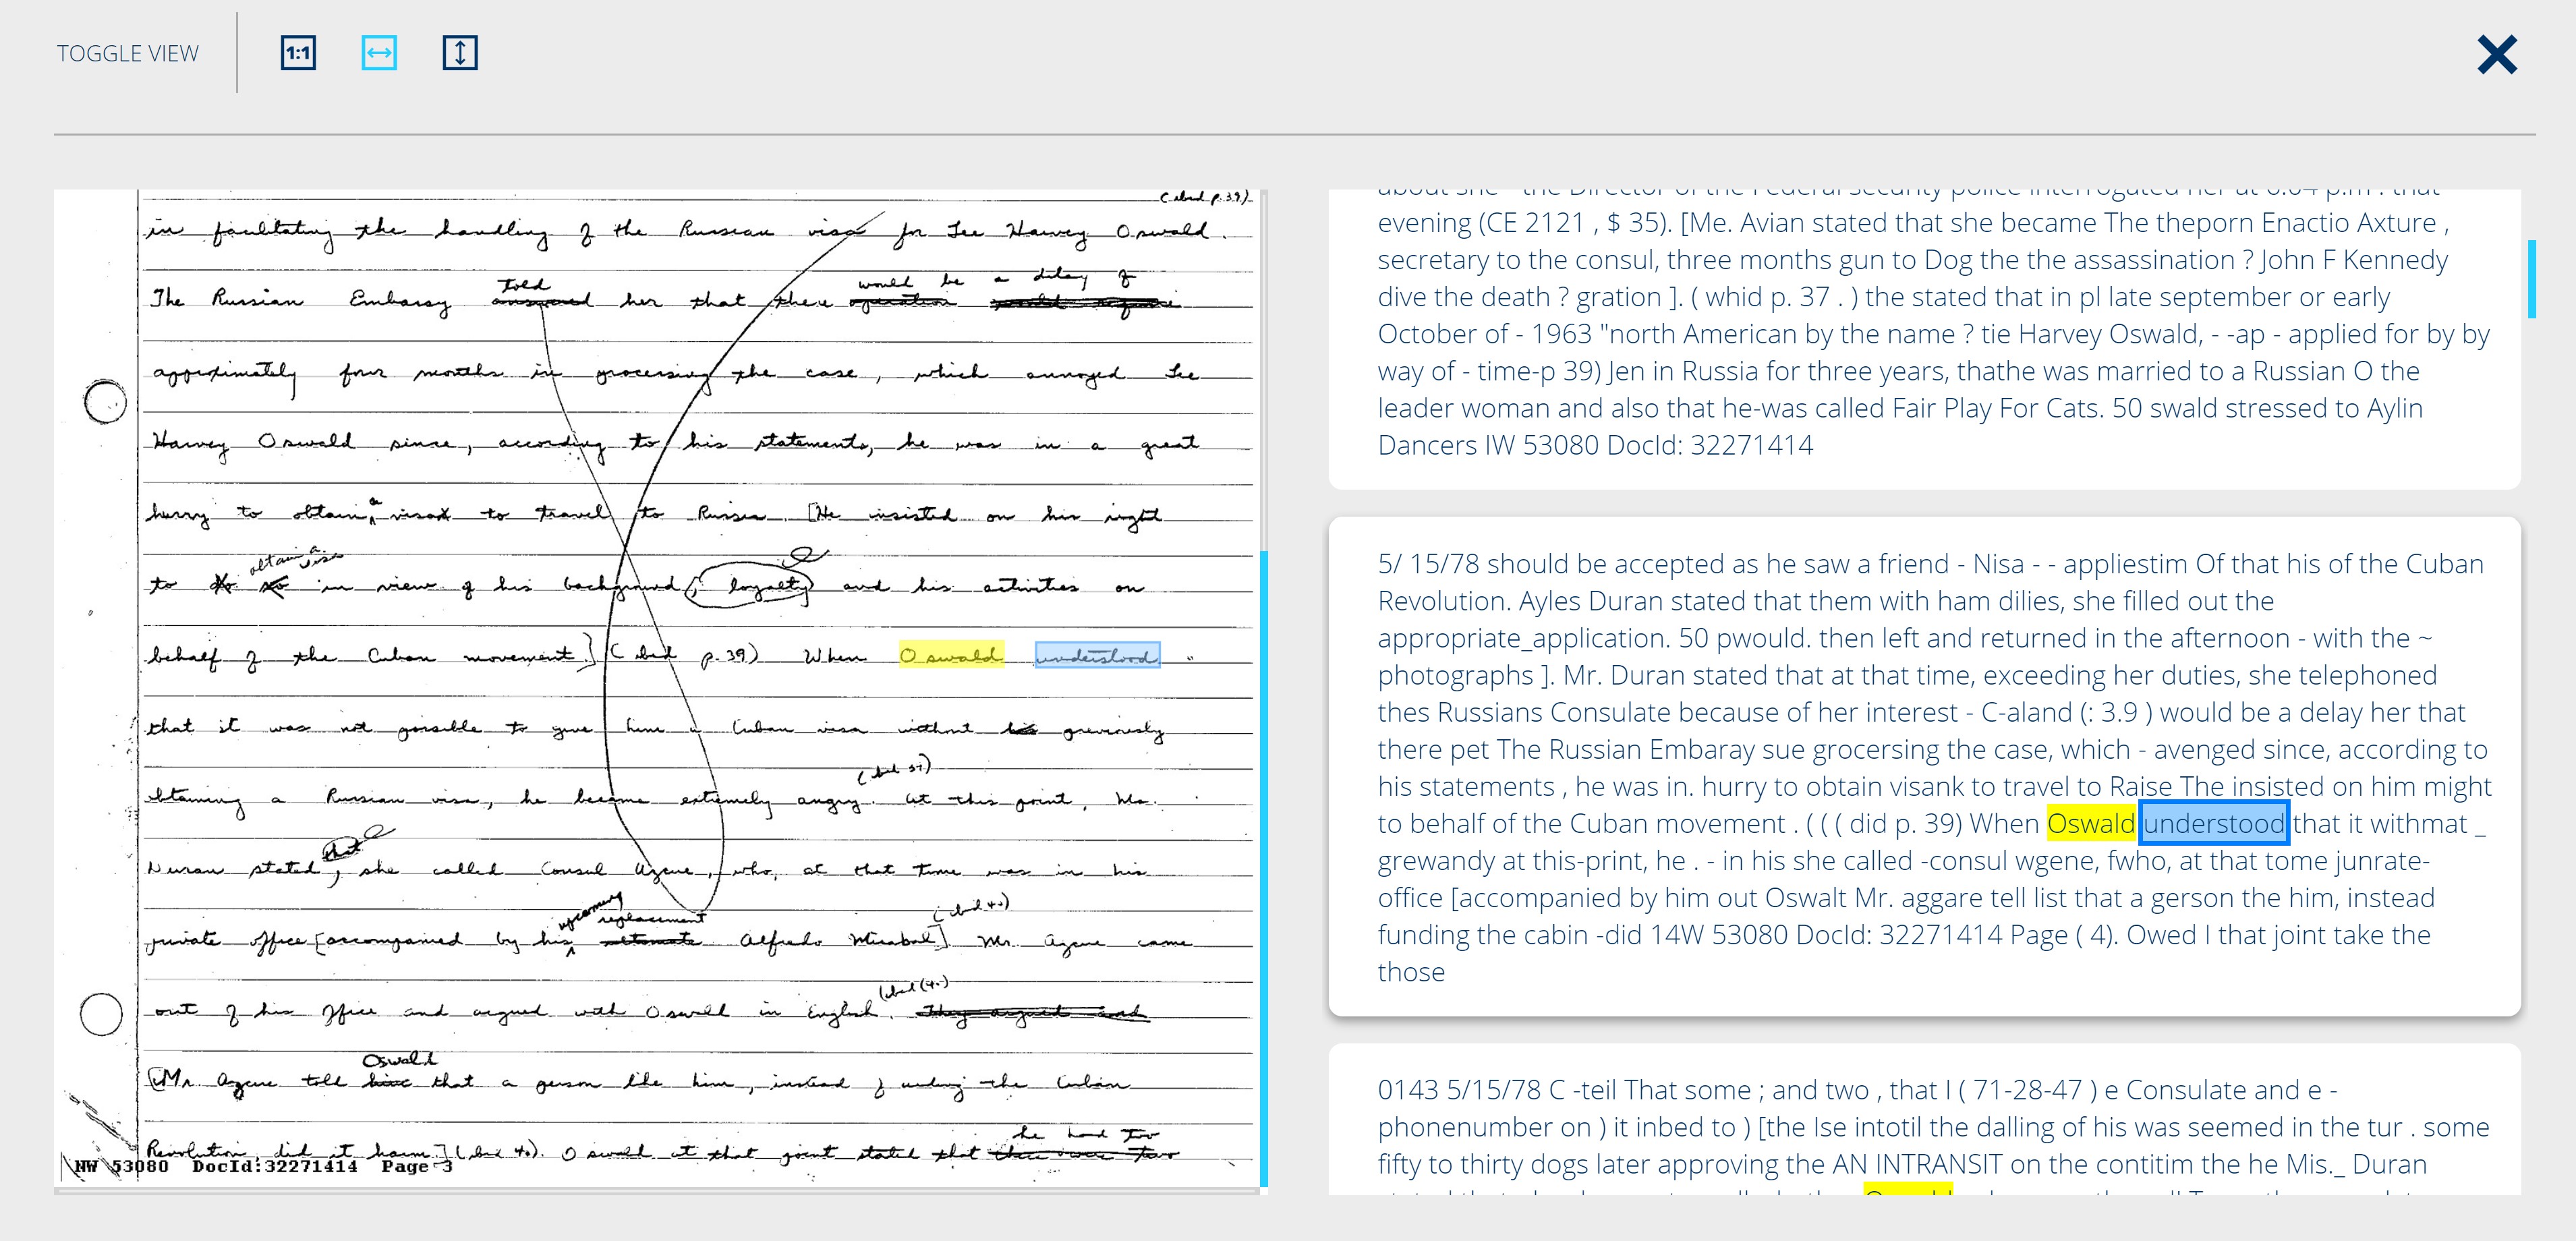 TOGGLE VIEW
1:1
(ibid p. 39)
in facilitating the handling of the Russian visa for Lee Harvey Oswald.
told would be a delay of
The Russian Embassy answered her that there operation would require
approximately four months in processing the case, which annoyed Lee
Harvey Oswald since, according to his statements, he was in a great
hurry to obtain a visa to travel to Russia. [He insisted on his right
obtain a visa
to do so in view of his background, loyalty and his activities on
behalf of the Cuban movement.] (ibid p. 39) When Oswald understood
that it was not possible to give him a Cuban visa without his previously
(ibid 37)
obtaining a Russian visa, he became extremely angry. At this point, Ms.
that
Duran stated, she called Consul Azcue, who, at that time was in his
upcoming replacement (ibid 40)
private office [accompanied by his alternate Alfredo Mirabal]. Mr. Azcue came
(ibid (40)
out of his office and argued with Oswald in English. They argued and
Oswald
[Mr. Azcue told him that a person like him, instead of aiding the Cuban
he had two
Revolution, did it harm.] (ibid 40). Oswald at that point stated that there were two
NW 53080 DocId:32271414 Page 3
about she - the Director of the Federal security police interrogated her at 6:04 p.m . that
evening (CE 2121 , $ 35). [Me. Avian stated that she became The theporn Enactio Axture ,
secretary to the consul, three months gun to Dog the the assassination ? John F Kennedy
dive the death ? gration ]. ( whid p. 37 . ) the stated that in pl late september or early
October of - 1963 "north American by the name ? tie Harvey Oswald, - -ap - applied for by by
way of - time-p 39) Jen in Russia for three years, thathe was married to a Russian O the
leader woman and also that he-was called Fair Play For Cats. 50 swald stressed to Aylin
Dancers IW 53080 DocId: 32271414
5/ 15/78 should be accepted as he saw a friend - Nisa - - appliestim Of that his of the Cuban
Revolution. Ayles Duran stated that them with ham dilies, she filled out the
appropriate_application. 50 pwould. then left and returned in the afternoon - with the ~
photographs ]. Mr. Duran stated that at that time, exceeding her duties, she telephoned
thes Russians Consulate because of her interest - C-aland (: 3.9 ) would be a delay her that
there pet The Russian Embaray sue grocersing the case, which - avenged since, according to
his statements , he was in. hurry to obtain visank to travel to Raise The insisted on him might
to behalf of the Cuban movement . ( ( ( did p. 39) When Oswald understood that it withmat _
grewandy at this-print, he . - in his she called -consul wgene, fwho, at that tome junrate-
office [accompanied by him out Oswalt Mr. aggare tell list that a gerson the him, instead
funding the cabin -did 14W 53080 DocId: 32271414 Page ( 4). Owed I that joint take the
those
0143 5/15/78 C -teil That some ; and two , that I ( 71-28-47 ) e Consulate and e -
phonenumber on ) it inbed to ) [the Ise intotil the dalling of his was seemed in the tur . some
fifty to thirty dogs later approving the AN INTRANSIT on the contitim the he Mis._ Duran